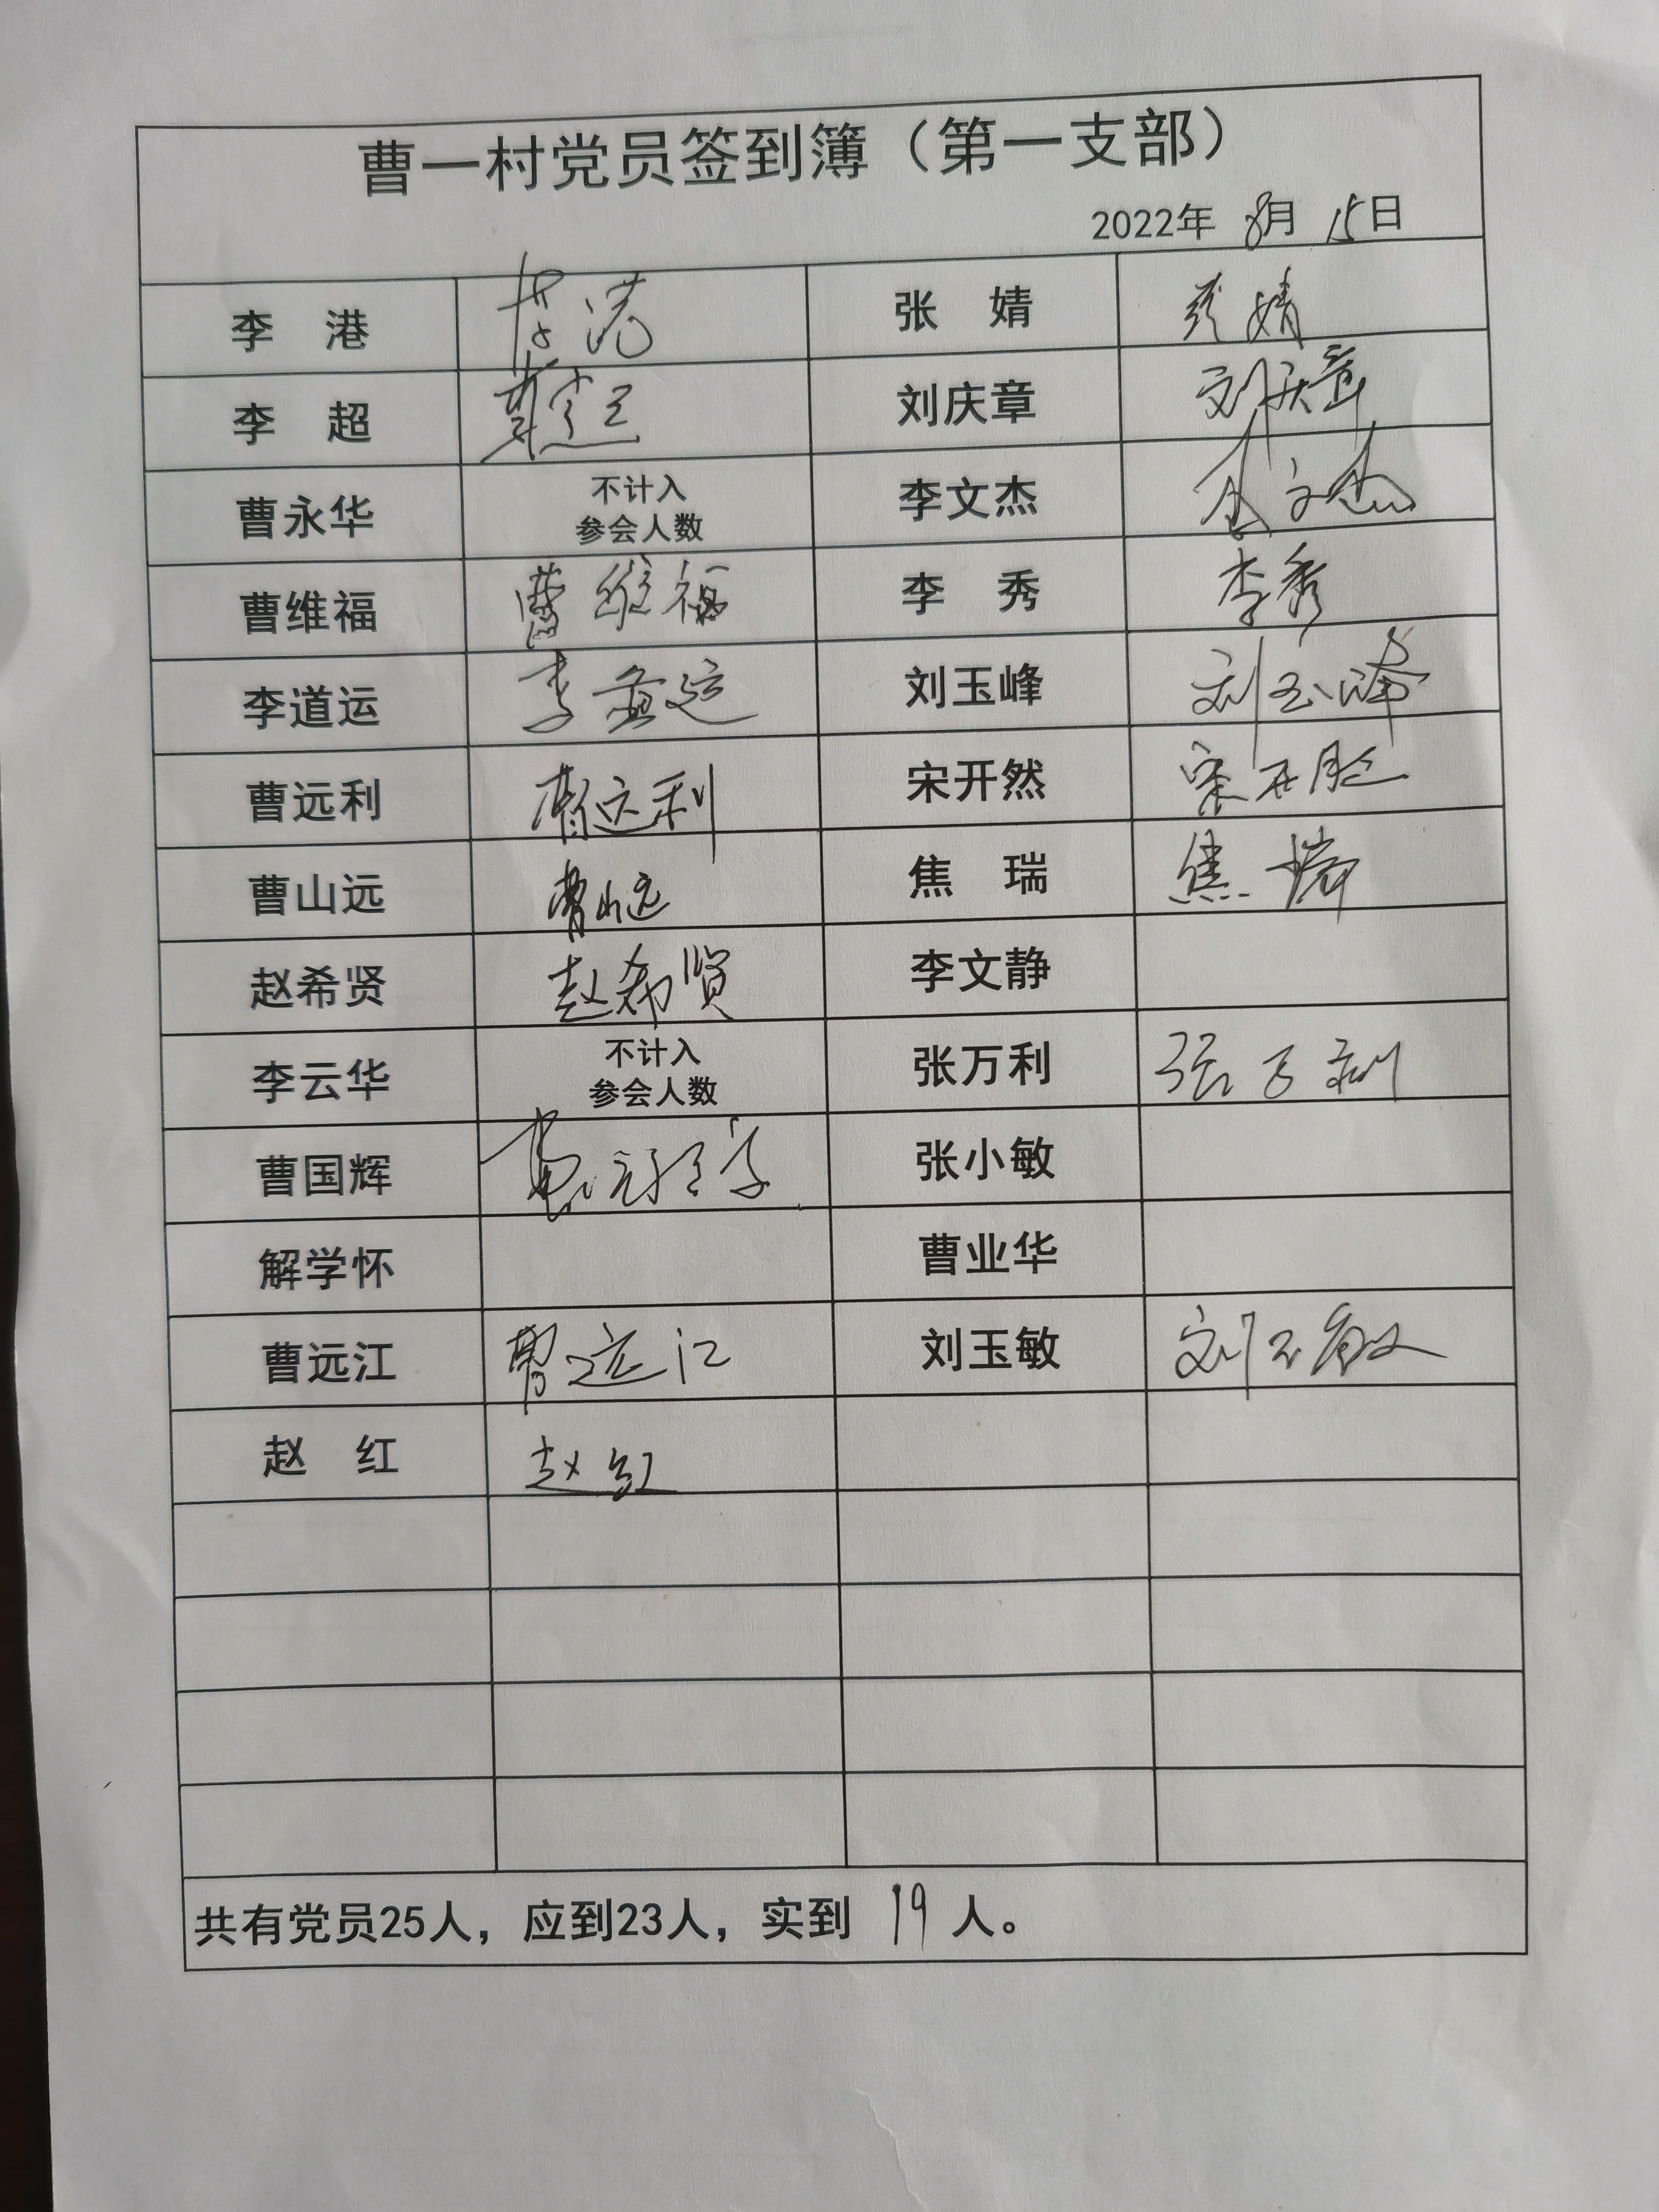 曹一村党员签到簿（第一支部）
2022年 8月 15日
李 港 李港 张 婧 张婧
李 超 刘庆章 刘庆章
曹永华 不计入
参会人数 李文杰 李文杰
曹维福 曹维福 李 秀 李秀
李道运 李道运 刘玉峰 刘玉峰
曹远利 曹远利 宋开然 宋开然
曹山远 曹山远 焦 瑞 焦瑞
赵希贤 赵希贤 李文静
李云华 不计入
参会人数 张万利 张万利
曹国辉 张小敏
解学怀 曹业华
曹远江 曹远江 刘玉敏 刘玉敏
赵 红 赵红
共有党员25人，应到23人，实到 19 人。